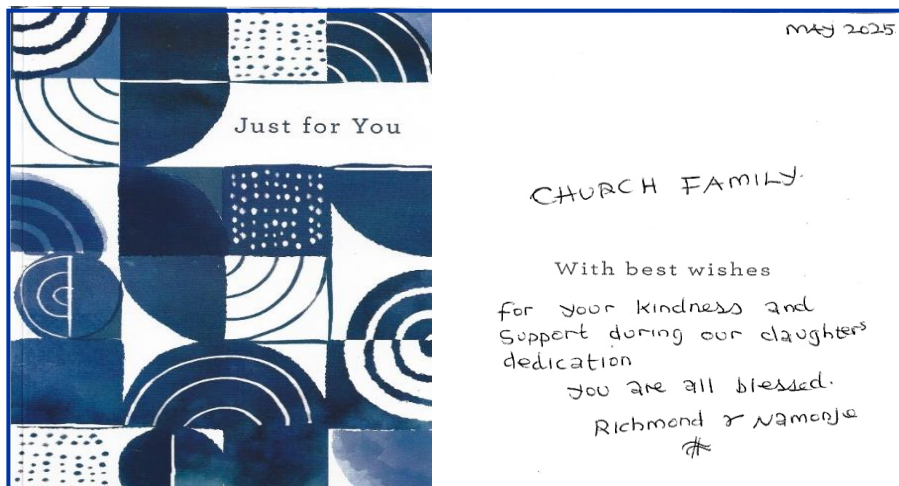 Just for You
MAY 2025
CHURCH FAMILY.
With best wishes
for your kindness and
Support during our daughters
dedication
you are all blessed.
Richmond & Namonje